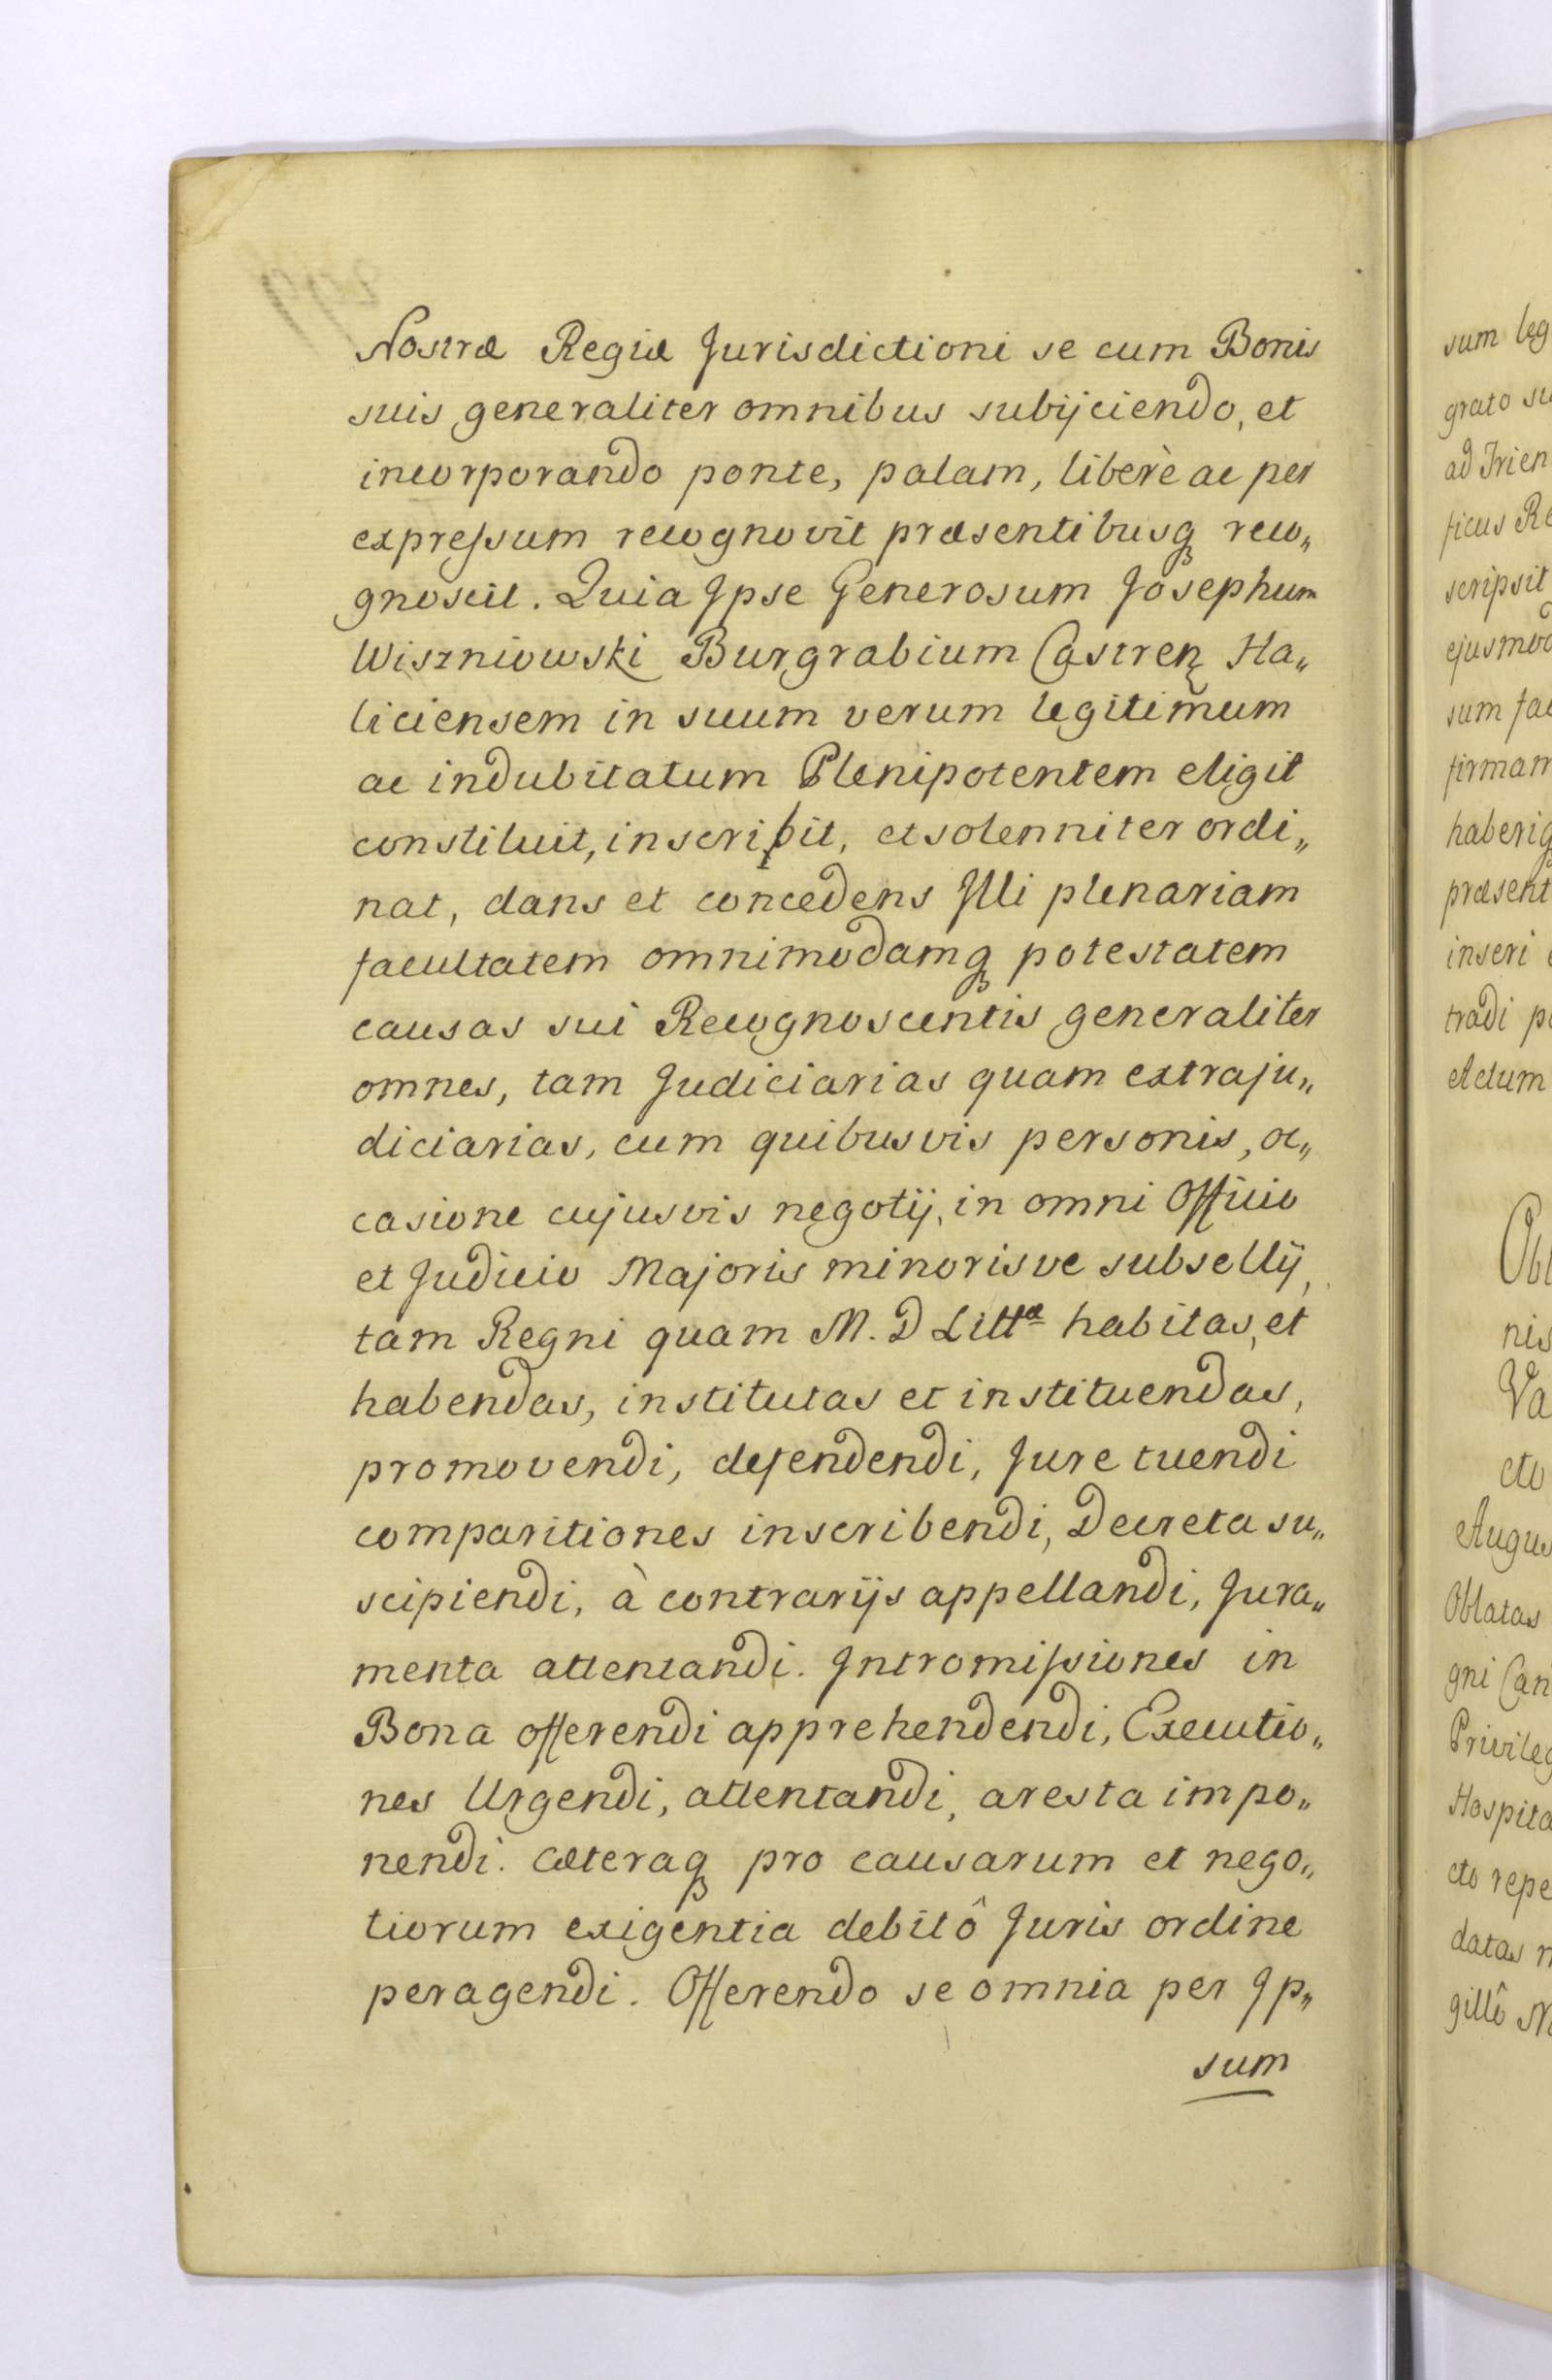 Nostræ Regiæ Jurisdictioni se cum Bonis
suis generaliter omnibus subijciendo, et
incorporando ponte, palam, liberè ac per
expreſsum recognovit præsentibusq̃ reco„
gnoscit. Quia Ipse Generosum Josephum
Wiszniowski Burgrabium Castren Ha„
liciensem in suum verum legitim̃um
ac indubitatum Plenipotentem eligit
constituit, inscribit, et solenniter ordi„
nat, dans et concedens Illi plenariam
facultatem omnimodamq̃ potestatem
causas sui Recognoscentis generaliter
omnes, tam Judiciarias quam extraju„
diciarias, cum quibusvis personis, oc„
casione cujusvis negotij, in omni Officio
et Judicio Majoris minorisve subsellij,
tam Regni quam M. D Littæ habitas, et
habendas, institutas et instituendas,
promovendi, defendendi, Jure tuendi
comparitiones inscribendi, Decreta su„
scipiendi, à contrarijs appellandi, Jura„
menta attentandi. Intromiſsiones in
Bona offerendi apprehendendi, Executio„
nes Urgendi, attentandi, aresta impo„
nendi. Cæteraq̃ pro causarum et nego„
tiorum exigentia debitô Juris ordine
peragendi. Offerendo se omnia per Ip„
sum
sum leg
grato su
ad Trien
ficus Re
scripsit
ejusmod
sum fac
firmam
haberiq̃
præsent
inseri
tradi p
Actum
Obl
nis
Va
cto
Augus
Oblatas
gni Can
Privileg
Hospita
cto repe
datas n
gillô N